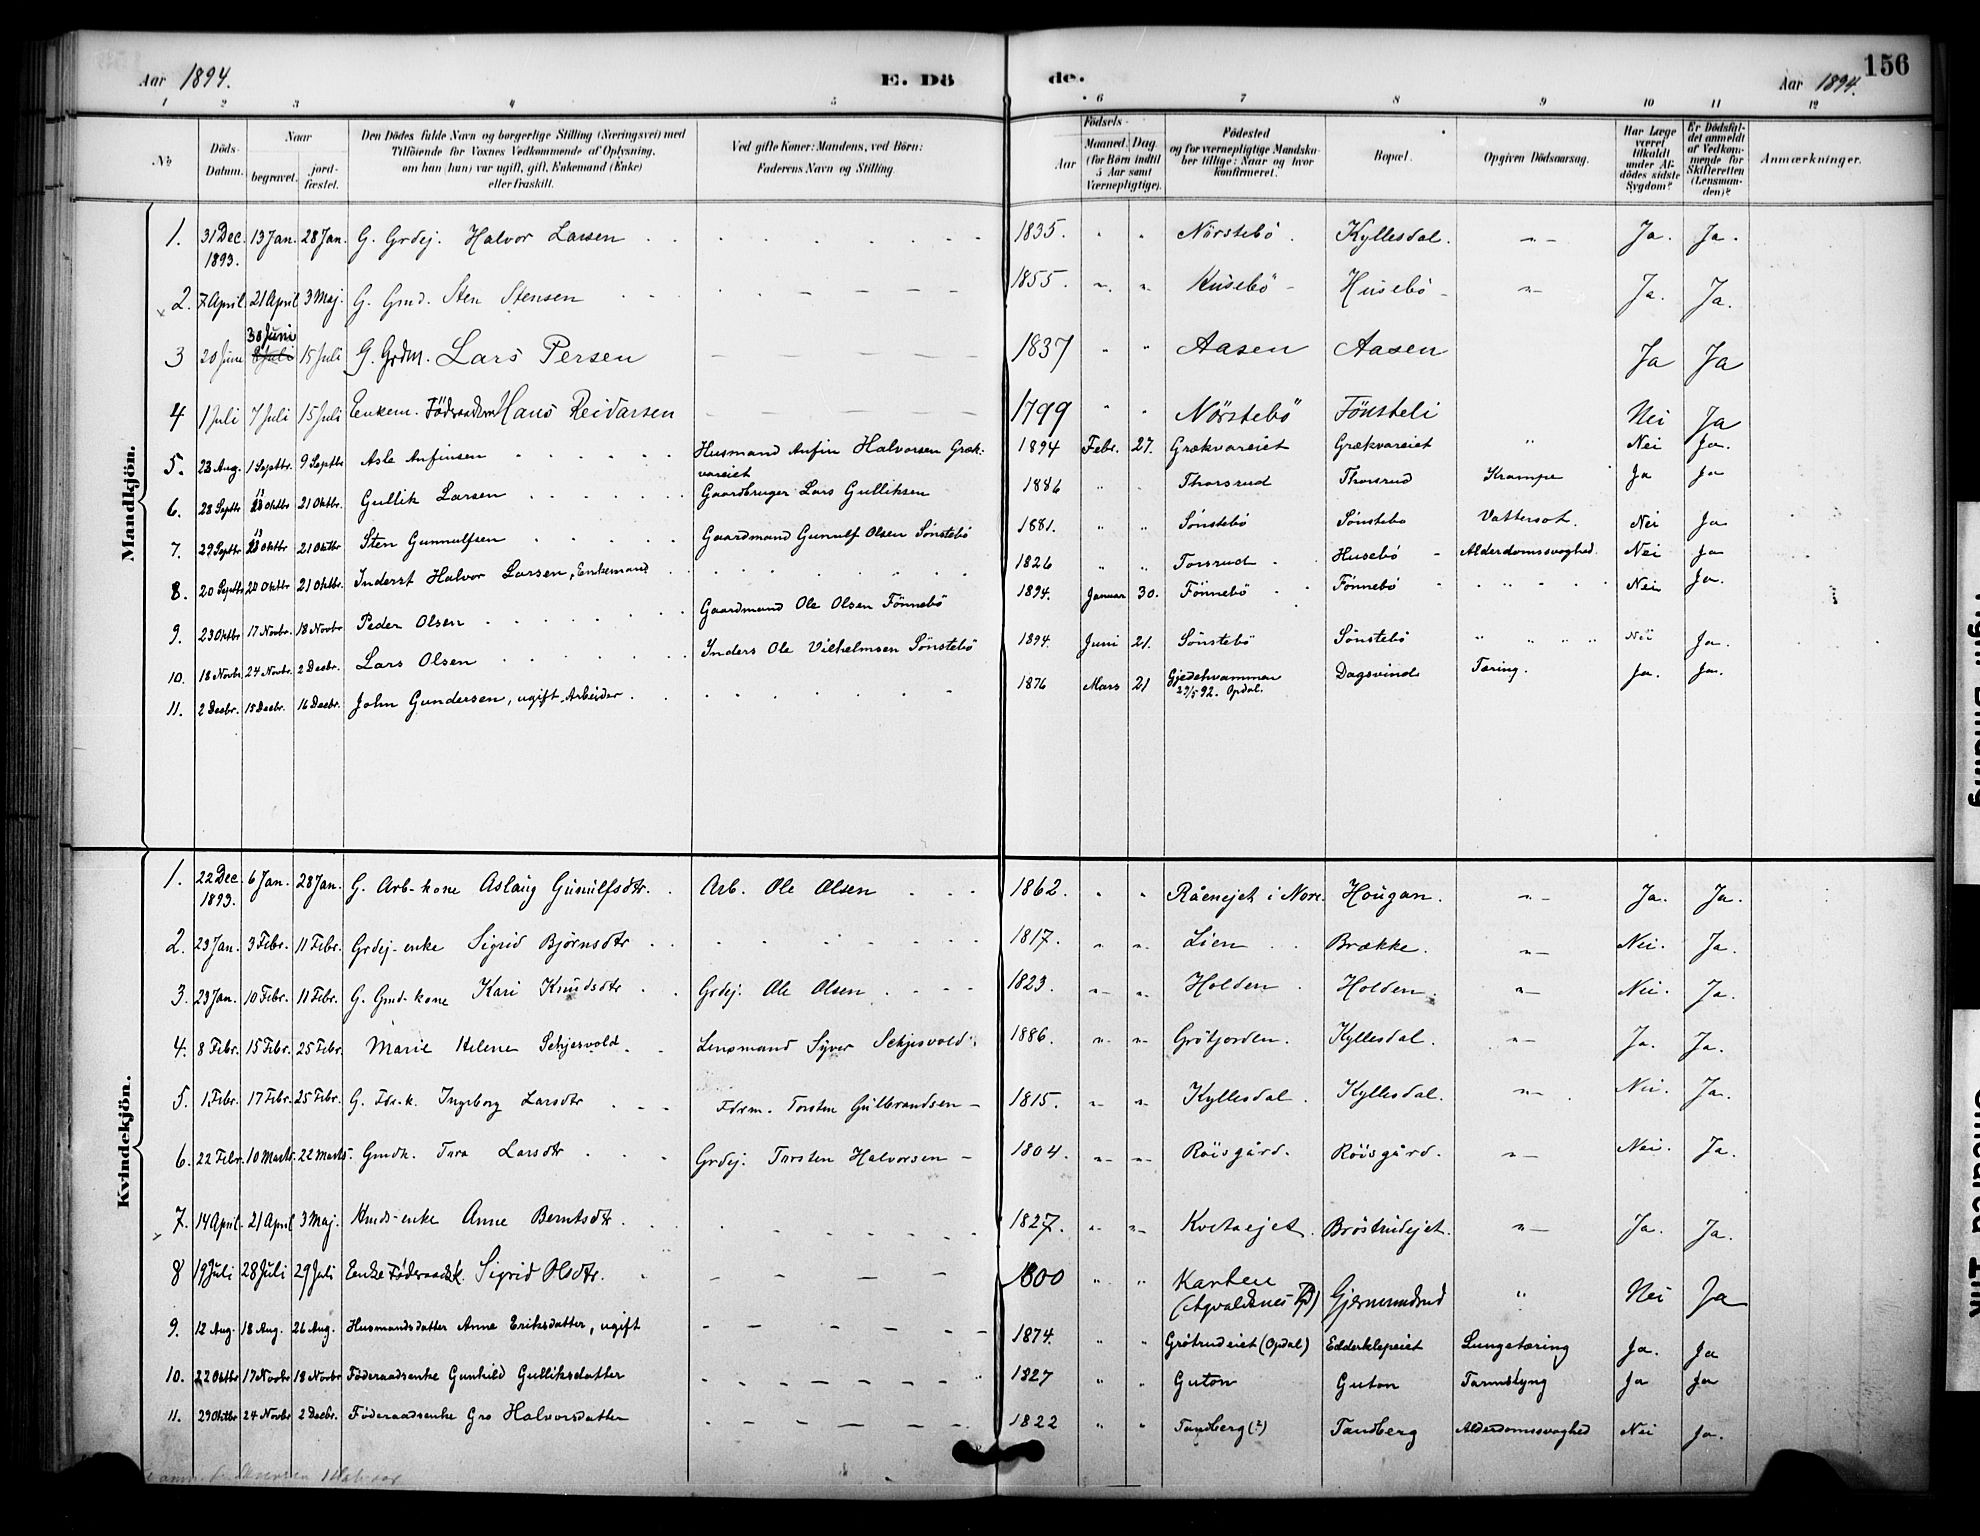 156
Aar 1894. E. Dö de. Aar 1894.
1 2 3 4 5 6 7 8 9 10 11 12
No
Döds-Datum.
Naar
begravet.
jordfæstet.
Den Dödes fulde Navn og borgerlige Stilling (Næringsvei) med
Tilföiende for Voxnes Vedkommende af Oplysning,
om han (hun) var ugift, gift, Enkemand (Enke)
eller fraskilt.
Ved gifte Koner: Mandens, ved Börn:
Faderens Navn og Stilling
Födsels-
Aar
Maaned. Dag.
(for Börn indtil
5 Aar samt
Værnepligtige).
Födested
og for værnepligtige Mandska-
ber tillige: Naar og hvor
konfirmeret.
Bopæl.
Opgiven Dödsaarsag.
Har Læge
været
tilkaldt
under Af-
dödes sidste
Sygdom?
Er Dödsfal-
det anmeldt
af Vedkom-
mende for
Skifteretten
(Lensman-
den)?
Anmærkninger.
Mandkjön.
1. 31 Dec. 1893. 13 Jan. 28 Jan. G. Grdej. Halvor Larsen 1835. Nörstebö. Kyllesdal. Ja. Ja.
2. 7 April 21 April 3 Maj. G. Gmd. Sten Stensen 1855. Husebö Husebö Ja. Ja.
3 20 Juni 30 Juni 8 Juli 15 Juli G. Grdm. Lars Persen 1837 Aasen Aasen Ja Ja
4 1 Juli 7 Juli 15 Juli Enkem. Föderaadsm Hans Reidarsen 1799 Nörstebö Fönsteli Nei Ja
5. 23 Aug. 1 Septbr. 9 Septbr Asle Anfinsen Husmand Anfin Halvorsen Græk-
vareiet 1894 Febr. 27. Grækvareiet Grækvareiet " Nei Ja.
6. 28 Septbr Oktbr 21 Oktbr. Gullik Larsen Gaardbruger Lars Gulliksen 1886 Thorsrud Thorsrud Krampe Ja Ja
7. 29 Septbr Oktbr 21 Oktbr Sten Gunnulfsen Gaardmand Gunulf Olsen Sönstebö 1881. Sönstebö Sönstebö Vattersot. Nei Ja
8. 20 Septbr 20 Oktbr 21 Oktbr. Inderst Halvor Larsen, Enkemand 1826 Torsrud Husebö Alderdomssvaghed. Nei Ja
9. 23 Oktbr 17 Novbr. 18 Novbr Peder Olsen Gaardmand Ole Olsen Fönnebö 1894. Januar 30. Fönnebö Fönnebö Nei Ja.
10. 18 Novbr 24 Novbr. 2 Decbr. Lars Olsen Inders Ole Vilhelmsen Sönstebö 1894. Juni 21. Sönstebö Sönstebö Nei Ja.
11. 2 Decbr. 15 Decbr. 16 Decbr. John Gundersen, ugift Arbeider 1876 Mars 21 Gjedehvammen
29/5 92. Opdal. Dagsvind Tæring. Ja. Ja.
Kvindekjön.
1. 22 Dec 1893. 6 Jan. 28 Jan. G. Arb-kone Aslaug Gunulfsdtr. Arb. Ole Olsen 1862. Råenejet i Nore. Hougan. Ja. Ja.
2. 23 Jan. 3 Febr. 11 Febr. Grdej-enke Sigrid Björnsdtr 1817. Lien Brække. Nei. Ja.
3. 23 Jan. 10 Febr. 11 Febr. G. Gmd-kone Kari Knudsdtr Grdej. Ole Olsen 1823. Holden Holden. Nei. Ja.
4. 8 Febr. 15 Febr. 25 Febr. Marie Helene Schjervold Lensmand Syver Schjervold. 1886. Grötjorden. Kyllesdal. Ja. Ja.
5. 1 Febr. 17 Febr. 25 Febr. G. Fdr.k. Ingeborg Larsdtr Fdrm. Torsten Gulbrandsen 1815. Kyllesdal. Kyllesdal. Nei. Ja.
6. 22 Febr. 10 Marts. 22 Marts. Gmdk. Tura Larsdtr Grdej. Torsten Halvorsen 1804. Röisgård. Röisgård. Nei. Ja.
7. 14 April. 21 April 3 Maj. Hmds-enke Anne Berntsdtr. 1827. Kvetaejet. Bröstrudejet. Ja. Ja.
8 19 Juli 28 Juli 29 Juli Enke Föderaadsk. Sigrid Olsdtr. 1800 Karhen
(Agvaldsnes Pd) Gjermundrud Nei Ja
9. 12 Aug. 18 Aug. 26 Aug. Husmandsdatter Anne Eriksdatter, ugift 1874. Grötrudeiet (Opdal) Edderklepeiet Lungetæring Ja. Ja
10. 22 Oktbr 17 Novbr 18 Novbr Föderaadsenke Gunhild Gulliksdatter 1827 Guton Guton Tarmslyng Ja Ja
11. 29 Oktbr 24 Novbr 2 Decbr. Föderaadsenke Gro Halvorsdatter 1822 Tandberg (?) Tandberg Alderdomssvaghed Nei Ja.